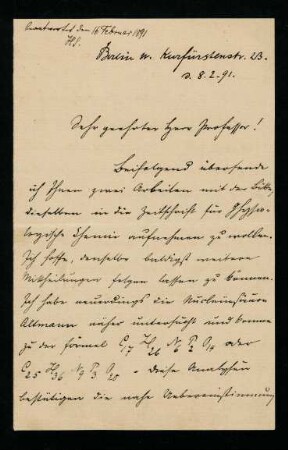 Beantwortet den 16 Februar 1891
HS.
Berlin W. Kurfürstenstr. 23.
d. 8.2.91.
Sehr geehrter Herr Professor!
Beifolgend übersende
ich Ihnen zwei Arbeiten mit der Bitte,
dieselben in die Zeitschrift für Physio-
logische Chemie aufnehmen zu wollen.
Ich hoffe, denselben baldigst weitere
Mittheilungen folgen lassen zu können.
Ich habe neuerdings die Nucleinsäure
Altmann näher untersucht und komme
zu der Formel C17 H26 N6 P2 O14 oder
C25 H36 N9 P3 O20 – diese Analysen
bestätigen die nahe Uebereinstimmung